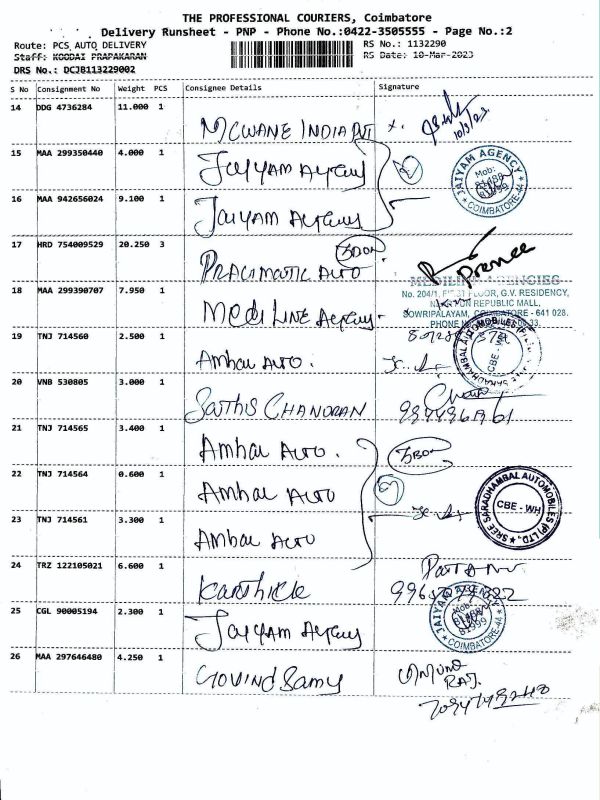 THE PROFESSIONAL COURIERS, Coimbatore
Delivery Runsheet - PNP - Phone No.:0422-3505555 - Page No.:2
Route: PCS AUTO DELIVERY
RS No.: 1132290
Staff: KOODAI PRAPAKARAN
RS Date: 10-Mar-2023
DRS No.: DCJB113229002
S No Consignment No Weight PCS Consignee Details Signature
14 DDG 4736284 11.000 1
MCWANE INDIA PVT
10/3/23
15 MAA 299350440 4.000 1
Jaiyam Agency
JAIYAM AGENCY
Mob:
COIMBATORE-44
16 MAA 942656024 9.100 1
Jaiyam Agency
17 HRD 754009529 20.250 3
3 Box
PRAGMATIC AUTO
Prence
18 MAA 299390707 7.950 1
MEDILINE AGENCIES
No. 204/1, FIRST FLOOR, G.V. RESIDENCY,
REPUBLIC MALL,
SOWRIPALAYAM, COIMBATORE - 641 028.
MEDI LINE Agency
19 TNJ 714560 2.500 1
Ambal Auto.
SREE SARADHAMBAL AUTOMOBILES (P) LTD.
CBE - WH
20 VNB 530805 3.000 1
Sathis CHANDRAN
21 TNJ 714565 3.400 1
Ambal Auto.
3 Box
22 TNJ 714564 0.600 1
Ambal Auto
3
SREE SARADHAMBAL AUTOMOBILES (P) LTD.
CBE - WH
23 TNJ 714561 3.300 1
Ambal Auto
24 TRZ 122105021 6.600 1
Karthick
25 CGL 90005194 2.300 1
Jaiyam Agency
JAIYAM AGENCY
Mob:
COIMBATORE-44
26 MAA 297646480 4.250 1
Govind Samy
RAJ.